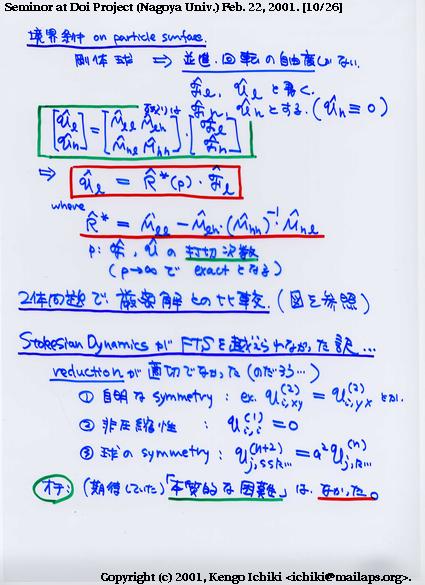 Seminar at Doi Project (Nagoya Univ.) Feb. 22, 2001. [10/26]
境界条件 on particle surface.
剛体球 ⇒ 並進、回転の自由度しかない。
F̂_l, Û_l と書く。
残りは F̂_n, Û_n とする. (Û_n ≡ 0)
[Û_l Û_n] = [M̂_ll M̂_ln M̂_nl M̂_nn]・[F̂_l F̂_n]
⇒ Û_l = R̂*(p)・F̂_l
where
R̂* = M̂_ll − M̂_ln・(M̂_nn)^-1・M̂_nl
p: F̂, Û の 打切次数
(p→∞ で exact となる)
2体問題で、厳密解との比較. (図を参照)
Stokesian Dynamics が FTS を越えられなかった訳...
reduction が適切でなかった (のだろう...)
① 自明な symmetry : ex. U_i,xy^(2) = U_i,yx^(2) とか.
② 非圧縮性 : U_i,i^(1) = 0
③ 球の symmetry : U_j,ssk...^(n+2) = a² U_j,k...^(n)
オチ: (期待していた)「本質的な困難」は、なかった。
Copyright (c) 2001, Kengo Ichiki <ichiki@mailaps.org>.